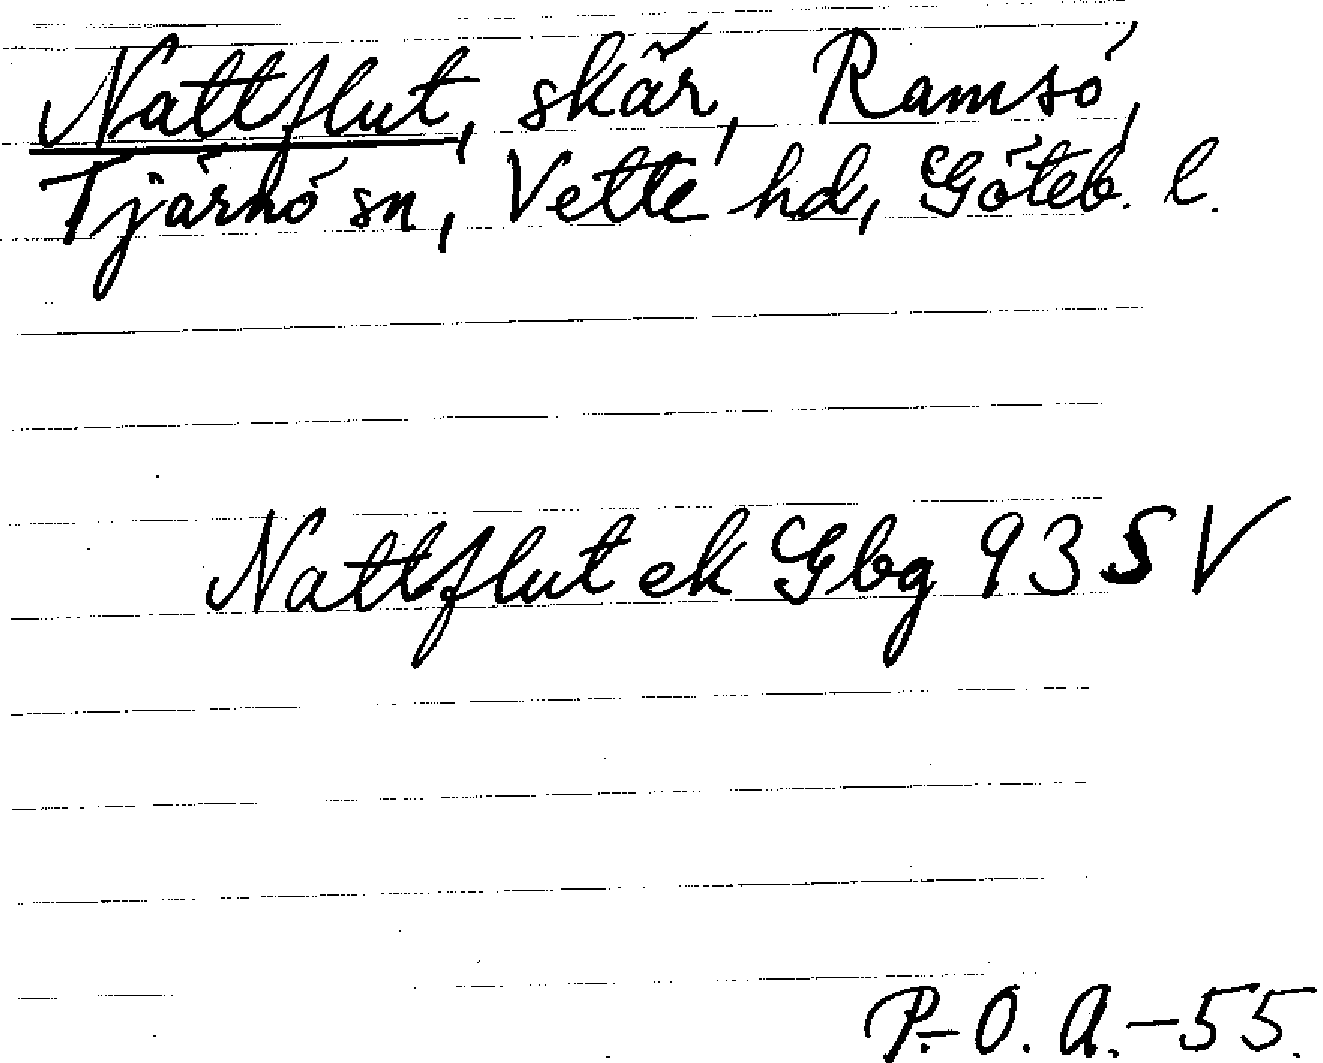 Nattflut, skär, Ramsö,
Tjärnö sn, Vette hd, Göteb. l.
Nattflut ek Gbg 93 SV
P.-O. A. -55.